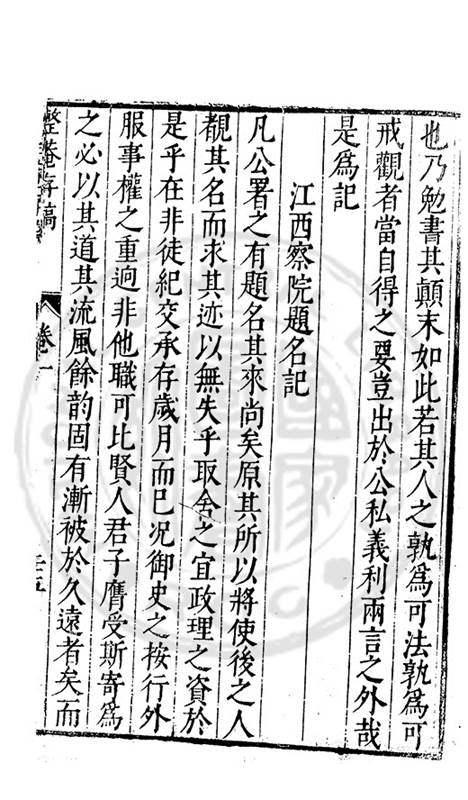 也乃勉書其顛末如此若其人之孰為可法孰為可
戒觀者當自得之要豈出於公私義利兩言之外哉
是為記
江西察院題名記
凡公署之有題名其來尚矣原其所以將使後之人
覩其名而求其迹以無失乎取舍之宜政理之資於
是乎在非徒紀交承存歲月而已况御史之按行外
服事權之重逈非他職可比賢人君子膺受斯寄為
之必以其道其流風餘韵固有漸被於久遠者矣而
整菴存稿
卷一